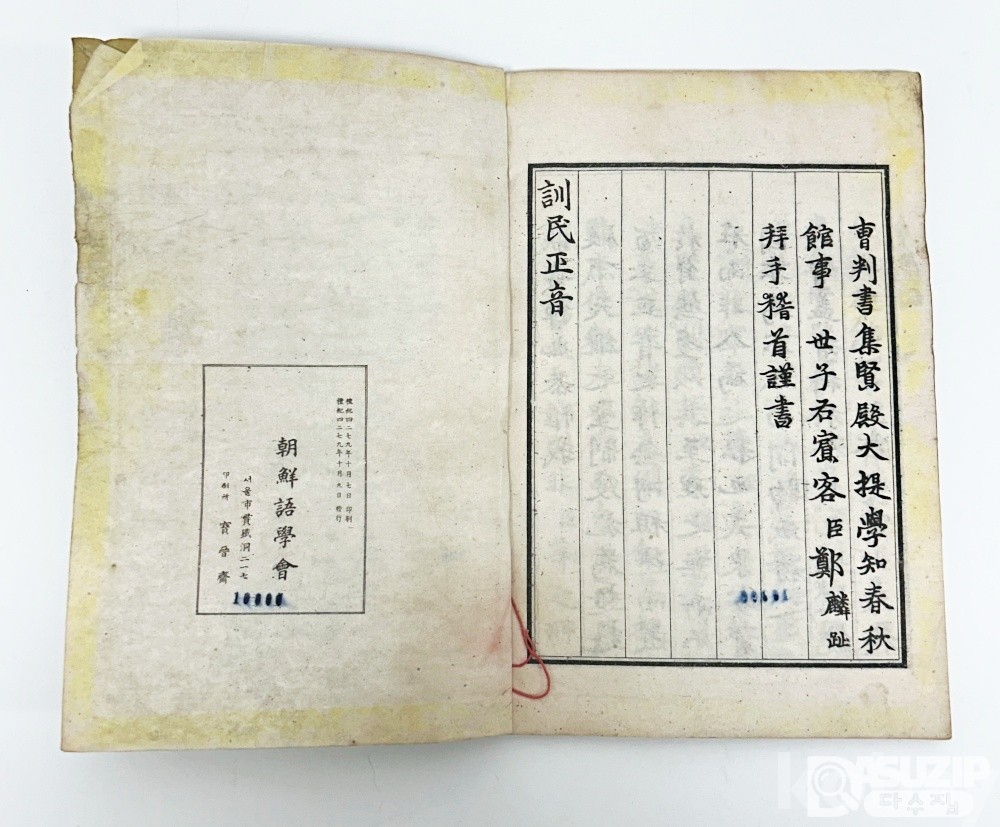 曺判書集賢殿大提學知春秋
館事 世子右賓客 臣鄭麟趾
拜手稽首謹書
訓民正音
檀紀四二七九年十月七日 印刷
檀紀四二七九年十月九日 發行
朝鮮語學會
서울市貫鐵洞二一七
印刷所 寶晉齋
10000
다수집